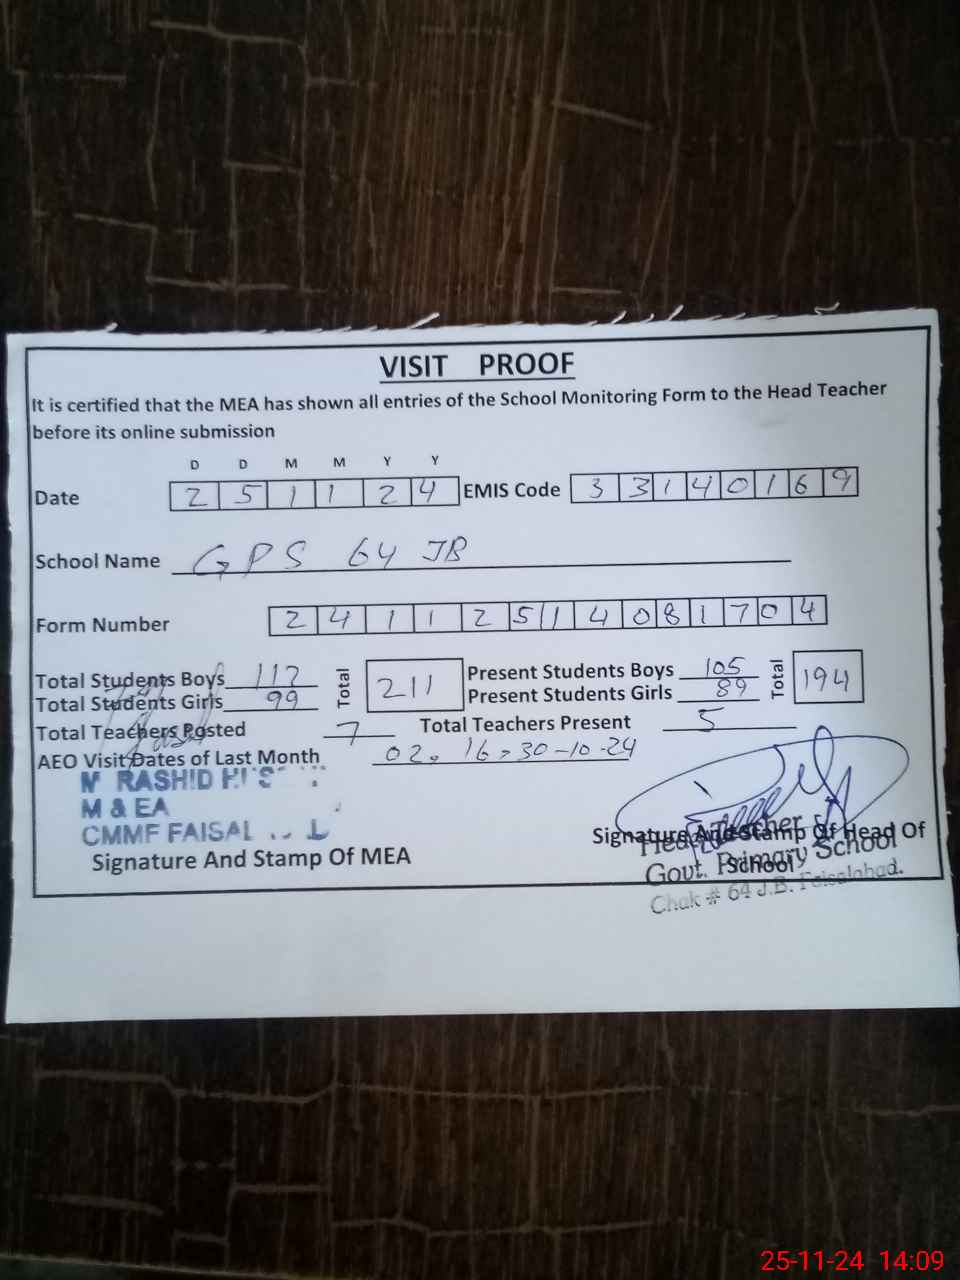 VISIT PROOF
It is certified that the MEA has shown all entries of the School Monitoring Form to the Head Teacher
before its online submission
D D M M Y Y
Date 2 5 1 1 2 4 EMIS Code 3 3 1 4 0 1 6 9
School Name GPS 64 JB
Form Number 2 4 1 1 2 5 1 4 0 8 1 7 0 4
Total Students Boys 112 Total 211 Present Students Boys 105 Total 194
Total Students Girls 99 Present Students Girls 89
Total Teachers Posted 7 Total Teachers Present 5
AEO Visit Dates of Last Month 02, 16, 30-10-24
M RASHID
M & EA
CMMF FAISAL
Signature And Stamp Of MEA
Signature And Stamp Of Head Of
School
Head Teacher
Govt. Primary School
Chak # 64 J.B. Faisalabad.
25-11-24 14:09